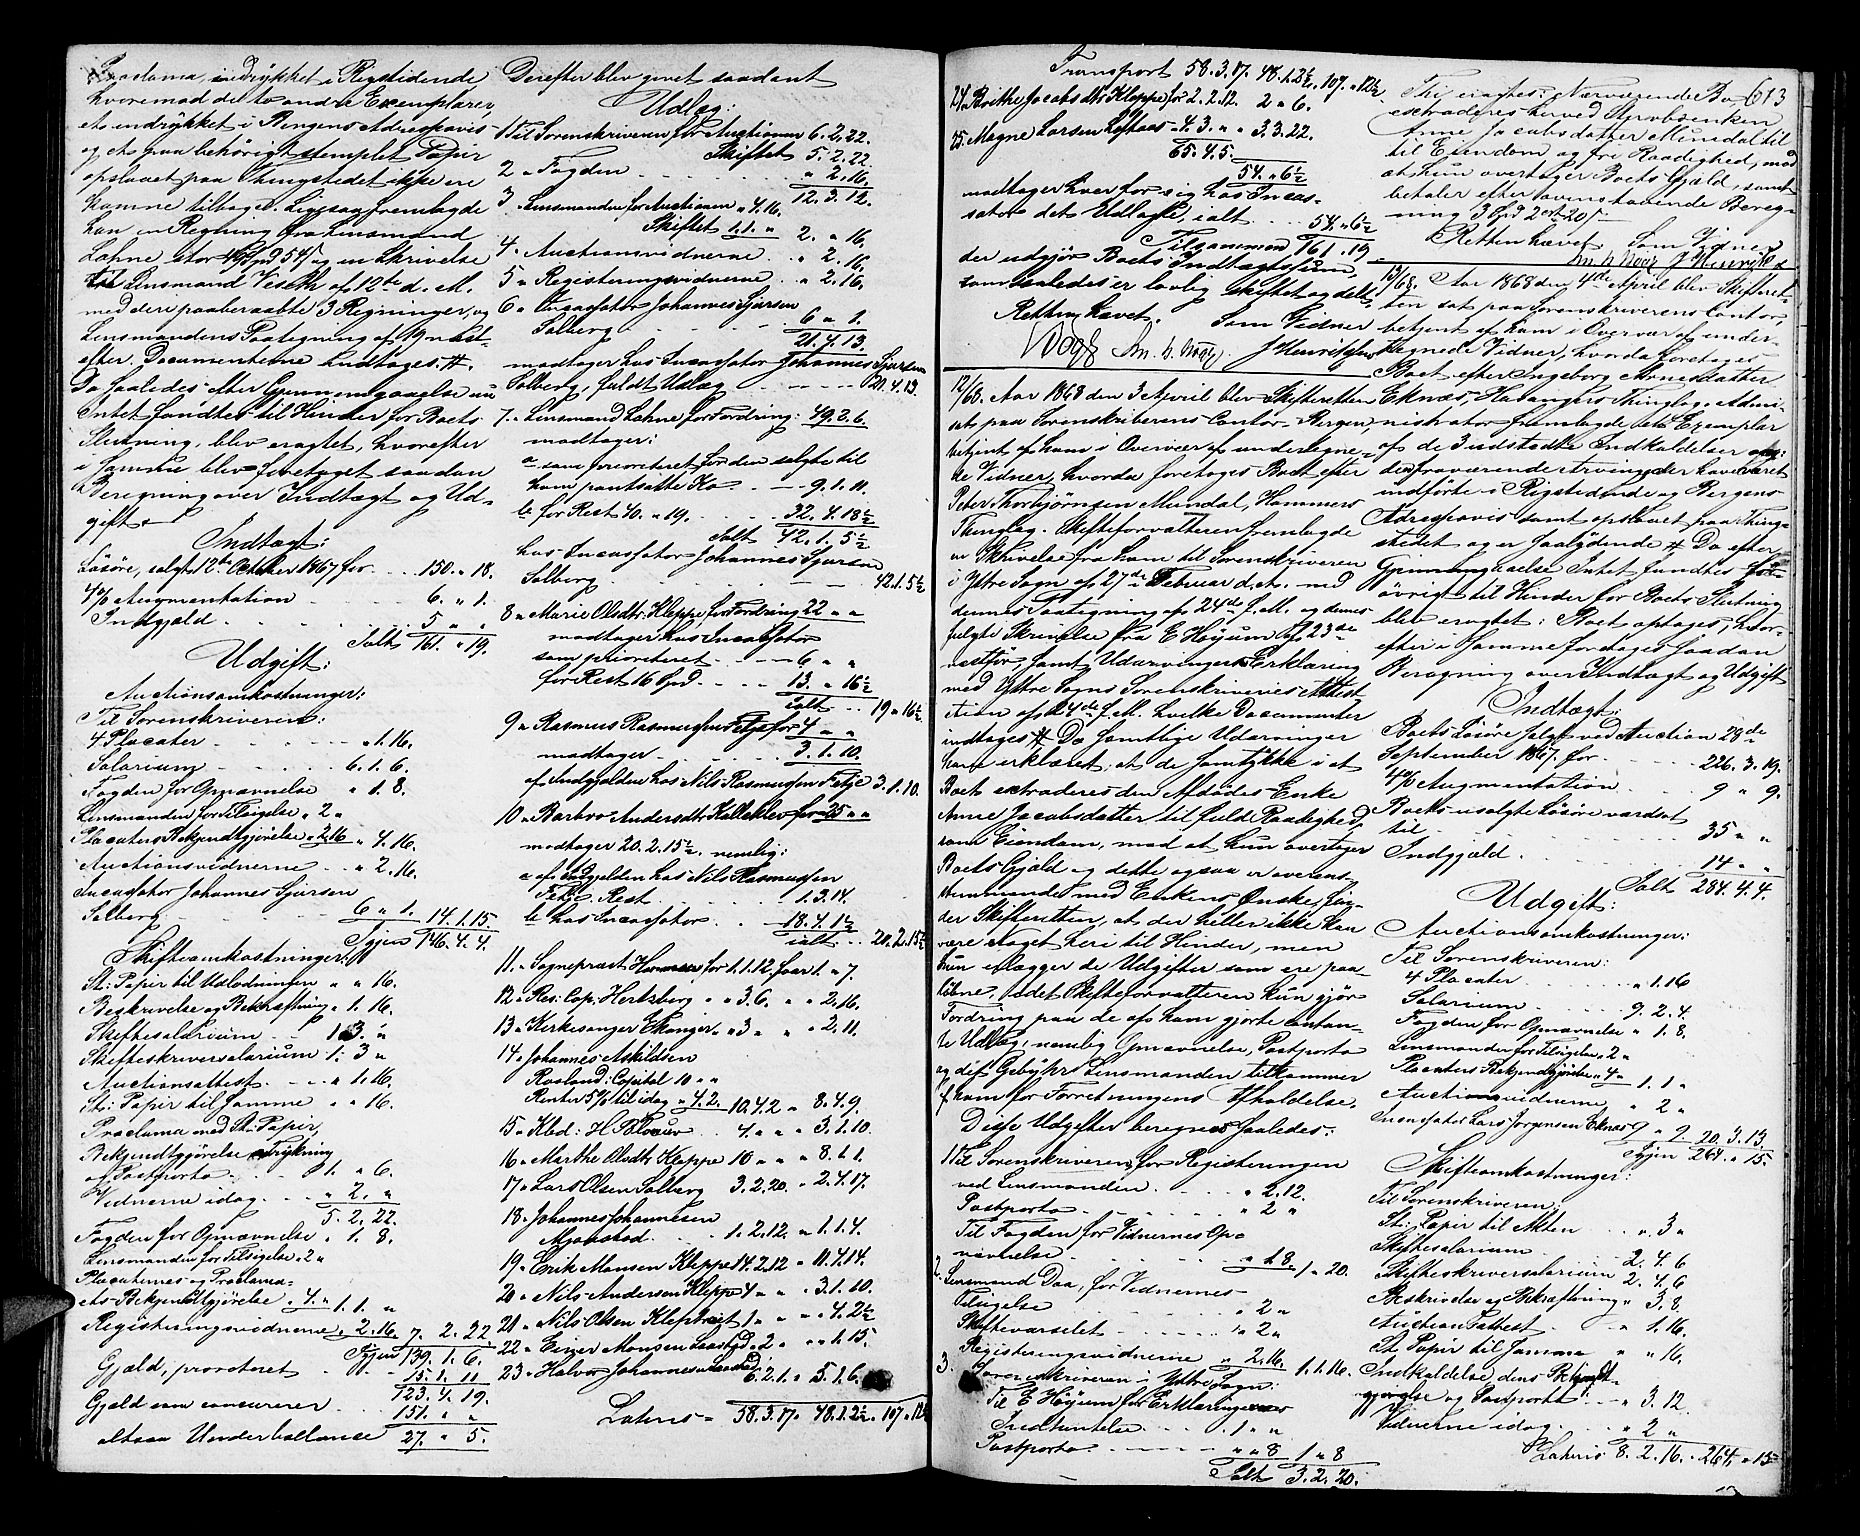 Proclama, indrykket i Rigstidende
hvoremod de to andre Exemplarer,
et indrykket i Bergens Adresseavis
og et paa behørigt stemplet Papir
opslaaet paa Thingstedet ikke ere
komne tilbage. Ligesaa fremlagde
han en Regning fra Lensmand
Lahne stor 49 Spd 54 β og en Skrivelse
til Lensmand Vestk af 12te d. M.
med deri paaberaabte 3 Regninger, og
Lensmandens Paategning af 19
efter. Documenterne indtages #.
Da saaledes efter Gjennemgaaelse
Intet fandtes til Hinder for Boets
Slutning, blev eragtet, hvorefter
i Samme blev foretaget saadan
Beregning over Indtægt og Ud-
gift
Indtægt:
Løsøre, solgt 12te October 1867 for 150. " 18.
4 % Augmentation 6. " 1.
Indgjæld 5 " "
Ialt 161. " 19.
Udgift:
Auctionsomkostninger:
Til Sorenskriveren:
4 Placater " 1. 16.
Salarium 6. 1. 6.
Fogden for Opnævnelse " 1. 8.
Lensmanden for Tilsigelse " 2 "
Placaters Bekjendtgjørelse " 2. 16 " 4. 16.
Auctionsvidnerne " 2. 16.
Incassator Johannes Sjursen
Solberg 6 " 1. 14. 1. 15
Igjen 146. 4. 4.
Skifteomkostninger:
St: Papir til Udlodningen " " 16.
Beskrivelse og Bekræftning " 1. 16.
Skiftesalarium 1 3. "
Skifteskriversalarium 1. 3 "
Auctionsattest " 1. 16.
St: Papir til Samme " " 16.
Proclama med St: Papir,
Bekjendtgjørelse Trykning
og Postporto 1. " 6.
Vidnerne idag " 2. "
5. 2. 22.
Fogden for Opnævnelse " 1. 8.
Lensmanden for Tilsigelse " 2 "
Placaternes og Proclama-
ets Bekjendtgjørelse " 4. " 1. 1. "
Registeringsvidnerne " 2. 16. 7. 2. 22
Igjen 139. 1. 6.
Gjæld, prioriteret 15. 1. 11
123. 4. 19.
Gjæld som concurerer 151. " "
altsaa Underballance 27. " 5.
Derefter blev givet saadant
Udlæg:
1 Til Sorenskriveren for Auctionen 6. 2. 22.
Skiftet 5. 2. 22
2 " Fogden " 2. 16.
12. 3. 12.
3 " Lensmanden for Auctionen " 4. 16.
Skiftet 1. 1. " 2. " 16.
4 " Auctionsvidnerne " 2. 16.
5 " Registeringsvidnerne " 2. 16.
6 " Incassator Johannes Sjursen
Solberg 6 " 1.
21. 4. 13.
modtager hos Incassator Johannes Sjursen
Solberg, fuldt Udlæg 21. 4. 13.
7. " Lensmand Lahne for Fordring: 49. 2. 6.
modtager:
a som prioriteret for den solgte til
ham pantsatte Ko 9. 1. 11.
b for Rest 40. " 19. 32. 4. 18½
Ialt 42. 1. 5½
hos Incassator Johannes Sjursen
Solberg 42. 1. 5½
8 " Marie Olsdtr: Kleppe for Fordring 22 " "
modtager hos Incassator
som prioriteret 6 " "
for Rest 16 Spd 13. " 16½
ialt 19 " 16½
9 " Rasmus Rasmussen Fetje for 4 " "
modtager 3. 1. 10.
af Indgjælden hos Nils Rasmussen Fetje 3. 1. 10.
10 " Barbro Andersdtr Kalleklev for 25 " "
modtager 20. 2. 15½ nemlig:
a af Indgjelden hos Nils Rasmussen
Fetje Rest 1. 3. 14.
b hos Incassator 18. 4. 1½
ialt 20. 2. 15½
11. " Sogneprest for 1. 1. 12. faar 1. " 7.
12 " Res: Cap: Hertzberg " " 3. 6. " " 2. 16.
13 " Kirkesanger Ekanger " " 3 " " " 2. 11.
14. " Johannes Askildsen
Rosland: Capital 10 " "
Renter 5 % til idag " 4. 2. 10. 4. 2 " 8. 4. 9.
15 " Kbd: H. 4. " " " 3. 1. 10.
16 " Marthe Olsdtr: Kleppe 10 " " " 8. 1. 1.
17 " Lars Olsen Solberg 3. 2. 20. " 2. 4. 17.
18 " Johannes Johannesen
Mjanstad 1. 2. 12. " 1. 1. 4.
19 " Erik Monsen Kleppe 14. 2. 12 " 11. 4. 14.
20 " Nils Andersen Kleppe 4 " " " 3. 1. 10.
21 " Nils Olsen Kleptveit 1 " " " " 4. 2½
22 " Einer Monsen Laastad " 2 " " " 1. 15.
23 " Halvor Johannesen Laastad 6. 2. 1. " 5. 1. 6
Lateris " 58. 3. 17. 48. 1. 2½. 107. " 12½
Transport 58. 3. 17. 48. 1. 2½. 107. " 12½.
24 " Brithe Jacobsdtr: Kleppe for 2. 2. 12. 2 " 6.
25. Magne Larsen Loftaas 4. 3. " " 3. 3. 22.
65. 4. 5.
54. " 6½
modtager hver for sig hos Incas-
sator det Udlagte, ialt 54. " 6½
Tilsammen 161. " 19
der udgjør Boets Indtægtssum,
som saaledes er lovlig skiftet og delt.
Retten hævet. Som Vidner
12/68. Aar 1868 den 3 April blev Skifteretten
sat paa Sorenskriverens Contor i Bergen,
betjent af ham i Overvær af undertegne-
de Vidner, hvorda foretoges Boet efter
Peter Thorbjørnsen Mundal, Hammers
Thinglag. Skifteforvalteren fremlagde
en Skrivelse fra ham til Sorenskriveren
i Yttre Sogn af 27de Februar d. A. med
dennes Paategning af 24de f. M. og dennes
fulgte Skrivelse fra E Høyum af 23de
næstfør, samt Udarvingers Erklæring
med Yttre Sogns Sorenskriveries Attest
ation af 24de f. M. hvilke Documenter
indtages # Da samtlige Udarvinger
have erklæret, at de samtykke i at
Boet extraderes den Afdødes Enke
Anne Jacobsdatter til fuld Raadighed
som Eiendom, mod at hun overtager
Boets Gjæld, og dette ogsaa er overens-
stemmende med Enkens Ønske, fin-
der Skifteretten, at der heller ikke kan
være Noget heri til Hinder, men
hun erlægger de Udgifter som ere paa-
løbne, idet Skifteforvalteren kun gjør
Fordring paa de af ham gjorte contan-
te Udlæg, nemlig Opnævnelse, Postporto
og det Gebyhr Lensmanden tilkommer
f. ham for Forretningens Afholdelse.
Disse Udgifter beregnes saaledes:
1 Til Sorenskriveren for Registeringen
ved Lensmanden " 2. 12.
Postporto " 2 "
Til Fogden for Vidnernes Op-
nævnelse " 1. 8. 1 " 20.
2. Lensmand Daa, for Vidnernes
Tilsigelse " 2 "
Skiftevarselet " 2 "
Registeringsvidnerne " 2. 16. 1. 1. 16.
3. Sorenskriveren i Yttre Sogn
Til E Høyum for Erklæringernes
Indhentelse 1 " "
Postporto " " 8 1 " 8
Ialt 3. 2. 20.
613
Thi eragtes: Nærværende Bo
extraderes herved Sterbsenken
Anne Jacobsdatter Mundal til
til Eiendom og fri Raadighed, mod
at hun overtager Boets Gjæld, samt
betaler efter ovenstaaende Bereg-
ning 3 Spd 2 ort 20 β
Retten hævet. Som Vidner
13/68. Aar 1868 den 4de April blev Skifteret-
ten sat paa Sorenskriverens Contor,
betjent af ham i Overvær af under-
tegnede Vidner, hvorda foretoges
Boet efter Ingeborg Arnesdatter
Eknæs, Hosangers Thinglag. Admi-
nistrator fremlagde et Exemplar
af de 3 udstedte Indkaldelser af
den fraværende Arving, der have været
indførte i Rigstidende og Bergens
Adresseavis samt opslaaet paa Thing-
stedet og er saalydende # Da efter
Gjennemgaaelse Intet fandtes
øvrigt til Hinder for Boets Slutning
blev eragtet: Boet optages, hvor-
efter i Samme foretoges saadan
Beregning over Indtægt og Udgift
Indtægt:
Boets Løsøre solgt ved Auction 28de
September 1867. for 226. 3. 19.
4 % Augmentation 9 " 9.
Boets usolgte Løsøre vurderet
til 35 " "
Indgjæld 14 " "
Ialt 284. 4. 4.
Udgift:
Auctionsomkostninger:
Til Sorenskriveren:
4 Placater " 1. 16
Salarium 9. 2. 4.
Fogden for Opnævnelse " 1. 8.
Lensmanden for Tilsigelse " 2 "
Placaters Bekjendtgjørelse " 4 " 1. 1 "
Auctionsvidnerne " 2 "
Incassator Lars Jørgensen Eknæs 9 " 9 20. 3. 13
Igjen 264. " 15.
Skifteomkostninger:
Til Sorenskriveren,
St: Papir til Akten " 3 "
Skiftesalarium 2. 4. 6
Skifteskriversalarium 2. 4. 6
Beskrivelse og Bekræftning " 3. 8.
Auctionsattest " 1. 16.
St. Papir til Samme " " 16.
Indkaldelse, dens Bekjendt-
gjørelse og Postporto " 3. 12.
Vidnerne idag " 2 "
Lateris 8. 2. 16. " 264. " 15